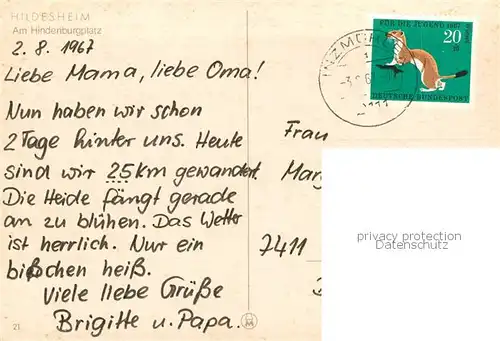 HILDESHEIM
Am Hindenburgplatz
2.8.1967
Liebe Mama, liebe Oma!
Nun haben wir schon
2 Tage hinter uns. Heute
sind wir 25 km gewandert.
Die Heide fängt gerade
an zu blühen. Das Wetter
ist herrlich. Nur ein
bißchen heiß.
Viele liebe Grüße
Brigitte u. Papa.
21
FÜR DIE JUGEND 1967
20
+10
DEUTSCHE BUNDESPOST
Frau
Mar
7411
privacy protection
Datenschutz